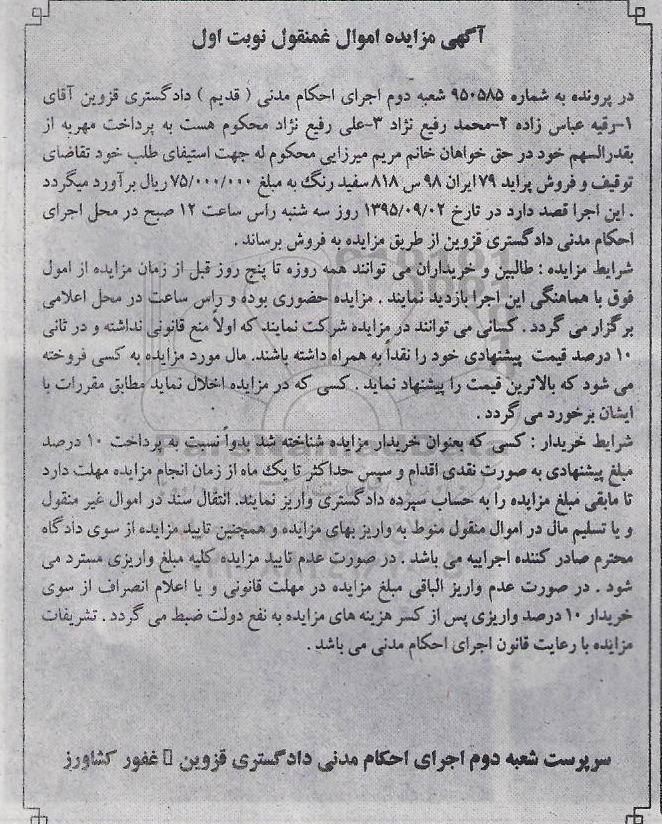 آگهی مزایده اموال غمنقول نوبت اول
در پرونده به شماره ۹۵۰۵۸۵ شعبه دوم اجرای احکام مدنی ( قدیم ) دادگستری قزوین آقای
۱-رقیه عباس زاده ۲-محمد رفیع نژاد ۳-علی رفیع نژاد محکوم هست به پرداخت مهریه از
بقدرالسهم خود در حق خواهان خانم مریم میرزایی محکوم له جهت استیفای طلب خود تقاضای
توقیف و فروش پراید ۷۹ایران ۹۸ س ۸۱۸ سفید رنگ به مبلغ ۷۵/۰۰۰/۰۰۰ ریال برآورد میگردد
. این اجرا قصد دارد در تارخ ۱۳۹۵/۰۹/۰۲ روز سه شنبه راس ساعت ۱۲ صبح در محل اجرای
احکام مدنی دادگستری قزوین از طریق مزایده به فروش برساند .
شرایط مزایده : طالبین و خریداران می توانند همه روزه تا پنج روز قبل از زمان مزایده از امول
فوق با هماهنگی این اجرا بازدید نمایند . مزایده حضوری بوده و راس ساعت در محل اعلامی
برگزار می گردد . کسانی می توانند در مزایده شرکت نمایند که اولاً منع قانونی نداشته و در ثانی
۱۰ درصد قیمت پیشنهادی خود را نقداً به همراه داشته باشند. مال مورد مزایده به کسی فروخته
می شود که بالاترین قیمت را پیشنهاد نماید . کسی که در مزایده اخلال نماید مطابق مقررات با
ایشان برخورد می گردد .
شرایط خریدار : کسی که بعنوان خریدار مزایده شناخته شد بدواً نسبت به پرداخت ۱۰ درصد
مبلغ پیشنهادی به صورت نقدی اقدام و سپس حداکثر تا یک ماه از زمان انجام مزایده مهلت دارد
تا مابقی مبلغ مزایده را به حساب سپرده دادگستری واریز نمایند. انتقال سند در اموال غیر منقول
و یا تسلیم مال در اموال منقول منوط به واریز بهای مزایده و همچنین تایید مزایده از سوی دادگاه
محترم صادر کننده اجراییه می باشد . در صورت عدم تایید مزایده کلیه مبلغ واریزی مسترد می
شود . در صورت عدم واریز الباقی مبلغ مزایده در مهلت قانونی و یا اعلام انصراف از سوی
خریدار ۱۰ درصد واریزی پس از کسر هزینه های مزایده به نفع دولت ضبط می گردد . تشریفات
مزایده با رعایت قانون اجرای احکام مدنی می باشد .
سرپرست شعبه دوم اجرای احکام مدنی دادگستری قزوین غفور کشاورز